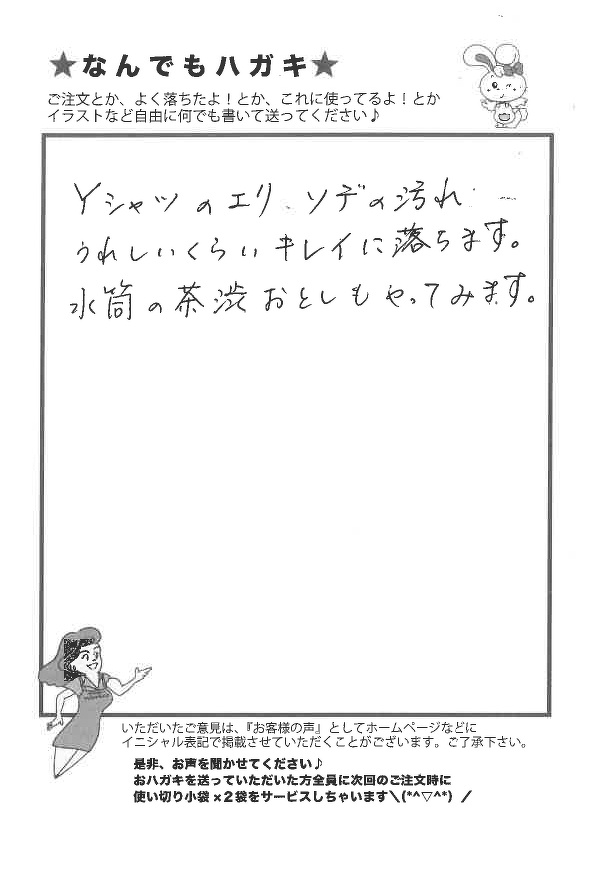 ★なんでもハガキ★
ご注文とか、よく落ちたよ！とか、これに使ってるよ！とか
イラストなど自由に何でも書いて送ってください♪
Yシャツのエリ、ソデの汚れ
うれしいくらいキレイに落ちます。
水筒の茶渋おとしもやってみます。
いただいたご意見は、『お客様の声』としてホームページなどに
イニシャル表記で掲載させていただくことがございます。ご了承下さい。
是非、お声を聞かせてください♪
おハガキを送っていただいた方全員に次回のご注文時に
使い切り小袋×2袋をサービスしちゃいます＼(*^▽^*)／